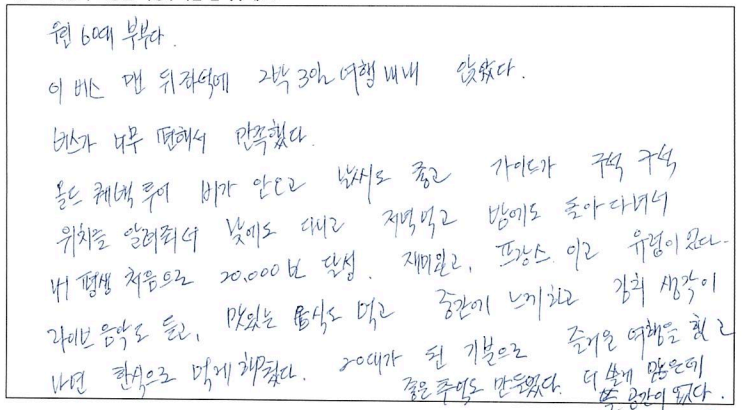 우린 60대 부부다.
이 버스 맨 뒤좌석에 2박3일 여행 내내 앉았다.
버스가 너무 편해서 만족했다.
올드 퀘벡 투어 비가 안오고 날씨도 좋고 가이드가 구석 구석
위치를 알려줘서 낮에도 다니고 저녁먹고 밤에도 돌아다녀서
내 평생 처음으로 20,000보 달성. 재미있고, 프랑스 이고 유럽이였다.
라이브 음악도 듣고, 맛있는 음식도 먹고 중간에 느끼하고 김치 생각이
나면 한식으로 먹게 해줬다. 20대가 된 기분으로 즐거운 여행을 했고
좋은 추억도 만들었다. 더 쓸게 많은데
쓸 공간이 없다.